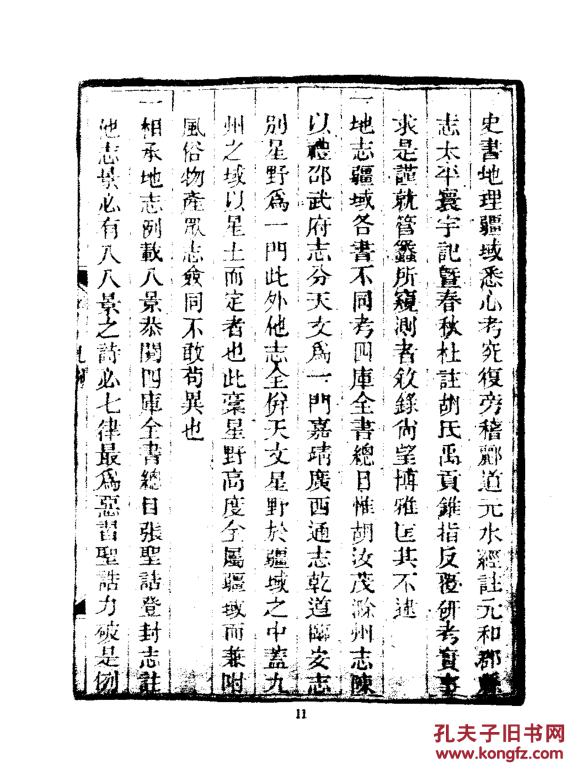 史書地理疆域悉心考究復旁稽酈道元水經註元和郡縣
志太平寰宇記暨春秋杜註胡氏禹貢錐指反覆研考實事
求是謹就管蠡所窺測者敘錄尚望博雅匡其不逮
一地志疆域各書不同考四庫全書總目惟胡汝茂滁州志陳
以禮邵武府志分天文為一門嘉靖廣西通志乾道臨安志
別星野為一門此外他志全併天文星野於疆域之中蓋九
州之域以星土而定者也此彙星野高度全屬疆域而兼附
風俗物產眾志僉同不敢苟異也
一相承地志例載八景恭閱四庫全書總目張聖誥登封志註
他志景必有八八景之詩必七律最為惡習聖誥力破是例
11
孔夫子旧书网
www.kongfz.com